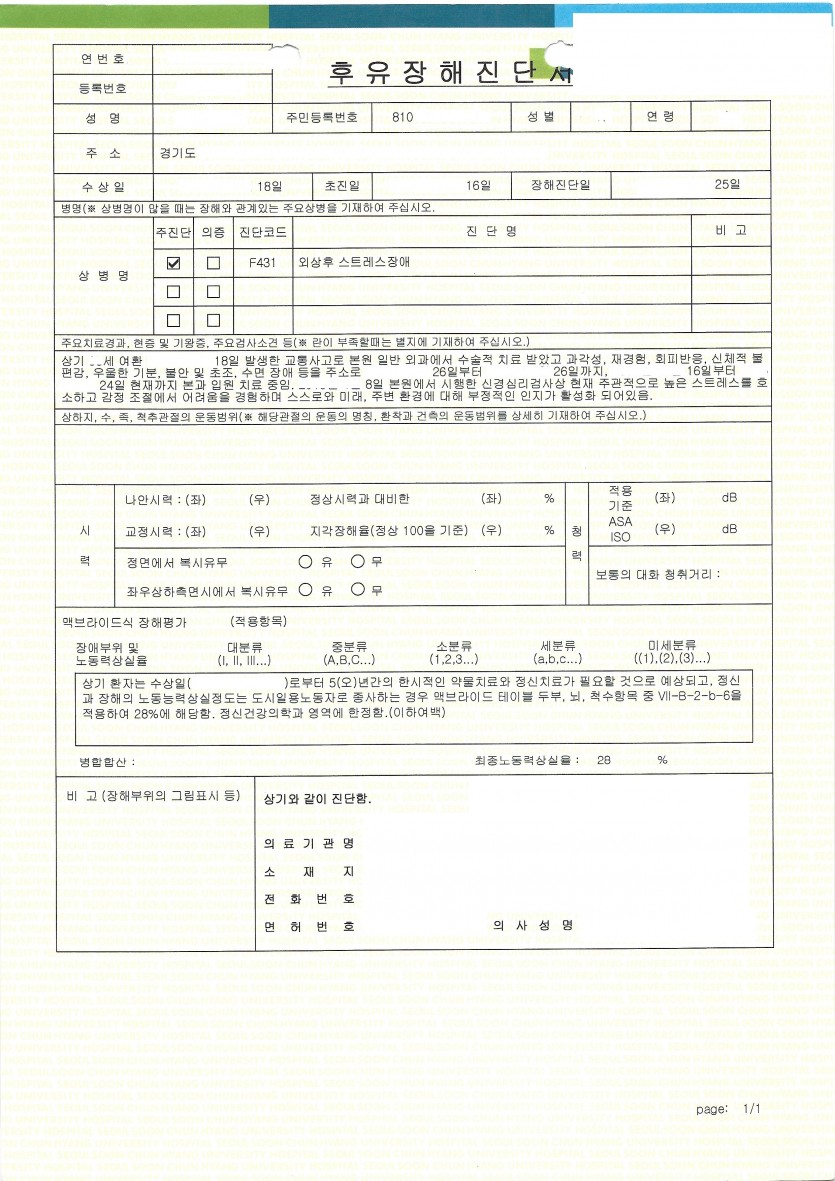 연 번 호
후 유 장 해 진 단 서
등록번호
성 명 주민등록번호 810 성 별 연 령
주 소 경기도
수 상 일 18일 초진일 16일 장해진단일 25일
병명(※ 상병명이 많을 때는 장해와 관계있는 주요상병을 기재하여 주십시오.
상 병 명 주진단 의증 진단코드 진 단 명 비 고
F431 외상후 스트레스장애
주요치료경과, 현증 및 기왕증, 주요검사소견 등(※ 란이 부족할때는 별지에 기재하여 주십시오.)
상기 세 여환 18일 발생한 교통사고로 본원 일반 외과에서 수술적 치료 받았고 과각성, 재경험, 회피반응, 신체적 불
편감, 우울한 기분, 불안 및 초조, 수면 장애 등을 주소로 26일부터 26일까지, 16일부터
24일 현재까지 본과 입원 치료 중임. 8일 본원에서 시행한 신경심리검사상 현재 주관적으로 높은 스트레스를 호
소하고 감정 조절에서 어려움을 경험하며 스스로와 미래, 주변 환경에 대해 부정적인 인지가 활성화 되어있음.
상하지, 수, 족, 척추관절의 운동범위(※ 해당관절의 운동의 명칭, 환착과 건측의 운동범위를 상세히 기재하여 주십시오.)
시 력
나안시력 : (좌) (우) 정상시력과 대비한 (좌) %
교정시력 : (좌) (우) 지각장해율(정상 100을 기준) (우) %
정면에서 복시유무 유 무
좌우상하측면시에서 복시유무 유 무
청 력
적용 기준 ASA ISO
(좌) dB
(우) dB
보통의 대화 청취거리 :
맥브라이드식 장해평가 (적용항목)
장애부위 및 대분류 중분류 소분류 세분류 미세분류
노동력상실율 (I, II, III...) (A,B,C...) (1,2,3...) (a,b,c...) ((1),(2),(3)...)
상기 환자는 수상일( )로부터 5(오)년간의 한시적인 약물치료와 정신치료가 필요할 것으로 예상되고, 정신
과 장해의 노동능력상실정도는 도시일용노동자로 종사하는 경우 맥브라이드 테이블 두부, 뇌, 척수항목 중 VII-B-2-b-6을
적용하여 28%에 해당함. 정신건강의학과 영역에 한정함.(이하여백)
병합합산 : 최종노동력상실율 : 28 %
비 고 (장해부위의 그림표시 등)
상기와 같이 진단함.
의 료 기 관 명
소 재 지
전 화 번 호
면 허 번 호 의 사 성 명
page: 1/1